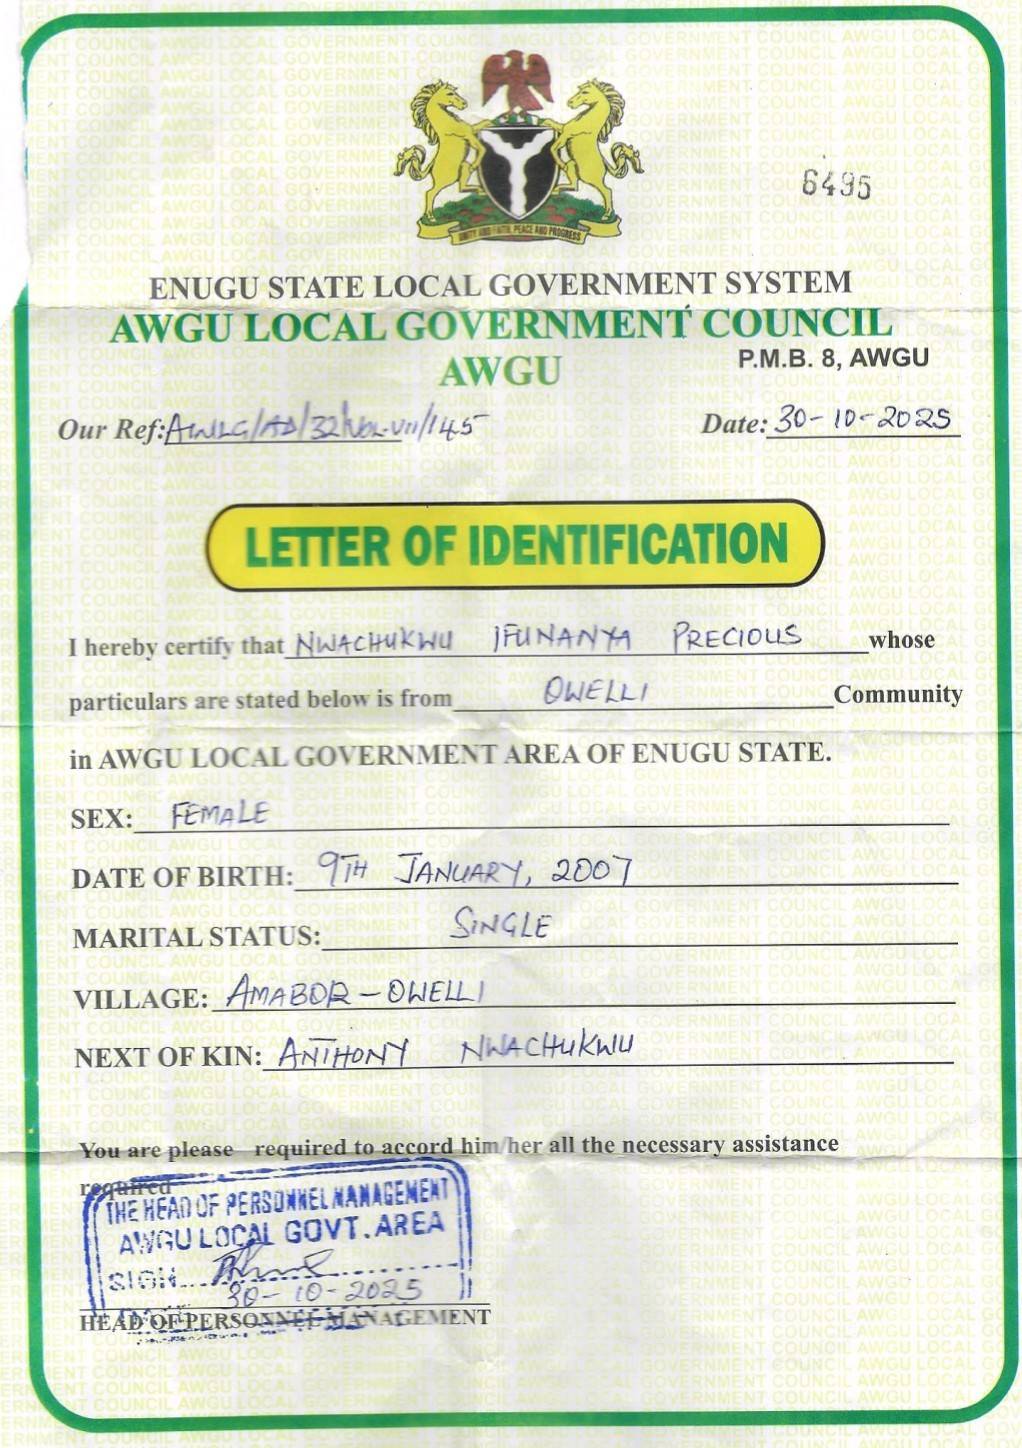 UNITY AND FAITH, PEACE AND PROGRESS
6495
ENUGU STATE LOCAL GOVERNMENT SYSTEM
AWGU LOCAL GOVERNMENT COUNCIL
AWGU
P.M.B. 8, AWGU
Our Ref: AWLG/AD/32/VOL.VII/145 Date: 30-10-2025
LETTER OF IDENTIFICATION
I hereby certify that NWACHUKWU IFUNANYA PRECIOUS whose
particulars are stated below is from OWELLI Community
in AWGU LOCAL GOVERNMENT AREA OF ENUGU STATE.
SEX: FEMALE
DATE OF BIRTH: 9TH JANUARY, 2007
MARITAL STATUS: SINGLE
VILLAGE: AMABOR-OWELLI
NEXT OF KIN: ANTHONY NWACHUKWU
You are please required to accord him/her all the necessary assistance
required
THE HEAD OF PERSONNEL MANAGEMENT
AWGU LOCAL GOVT. AREA
SIGN
30-10-2025
HEAD OF PERSONNEL MANAGEMENT